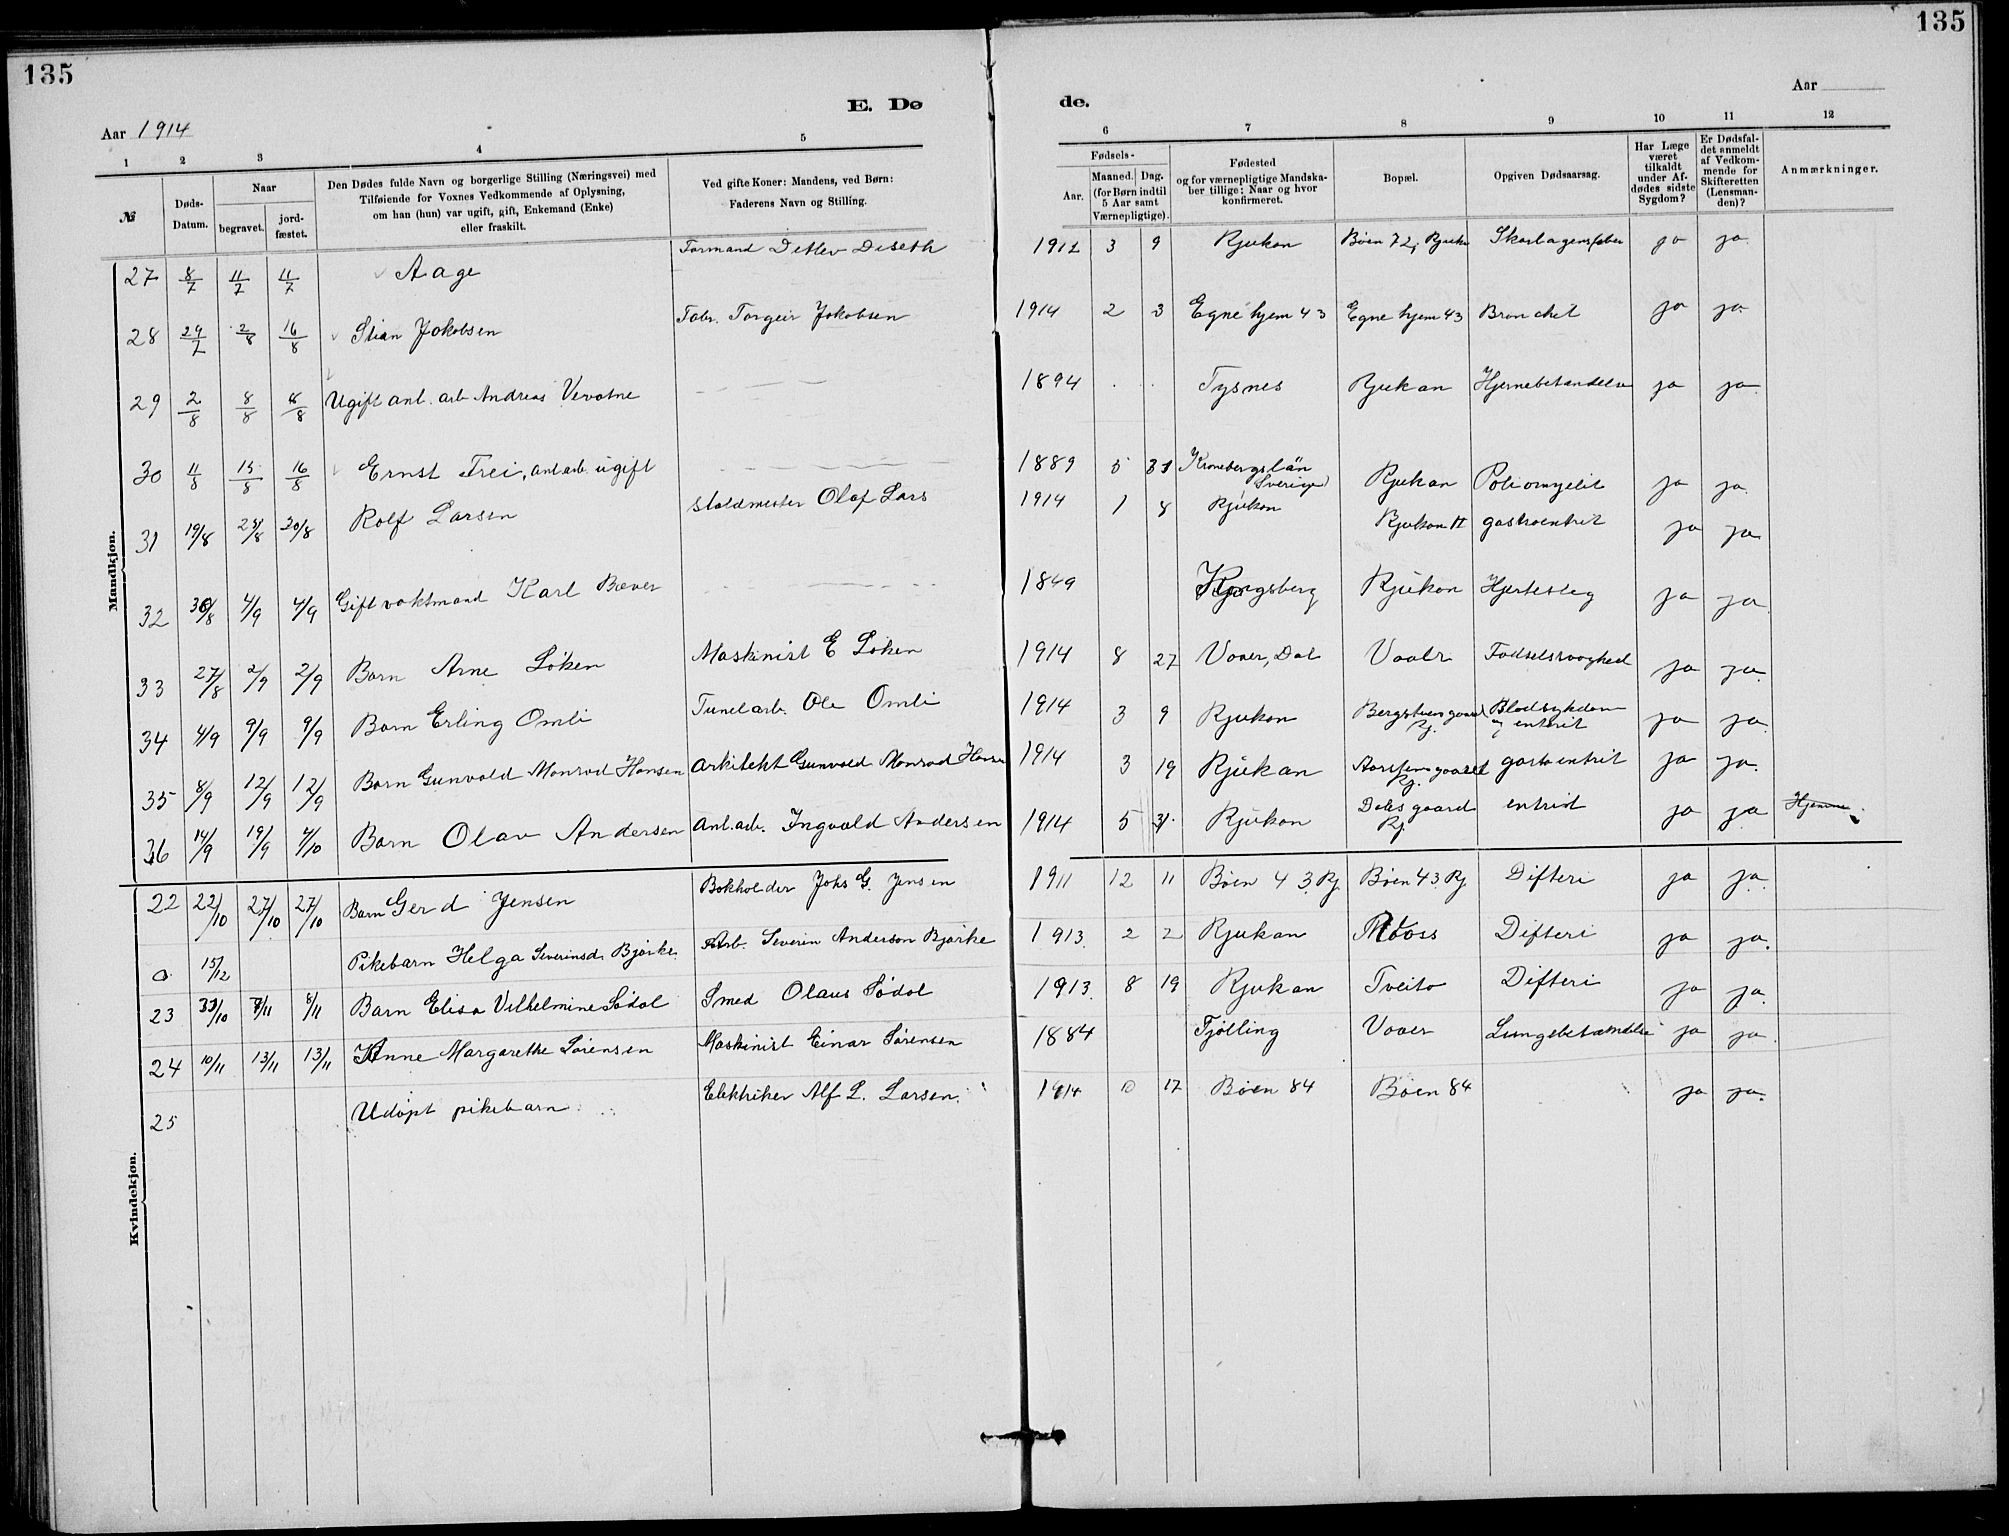 135
135
E. Dø
de.
Aar 1914
Aar
1 2 3 4 5
6 7 8 9 10 11 12
№
Døds-Datum.
Naar
begravet.
jord-fæstet.
Den Dødes fulde Navn og borgerlige Stilling (Næringsvei) med
Tilføiende for Voxnes Vedkommende af Oplysning,
om han (hun) var ugift, gift, Enkemand (Enke)
eller fraskilt.
Ved gifte Koner: Mandens, ved Børn:
Faderens Navn og Stilling.
Fødsels-
Aar.
Maaned. Dag.
(for Børn indtil
5 Aar samt
Værnepligtige).
Fødested
og for værnepligtige Mandska-
ber tillige: Naar og hvor
konfirmeret.
Bopæl.
Opgiven Dødsaarsag.
Har Læge
været
tilkaldt
under Af-
dødes sidste
Sygdom?
Er Dødsfal-
det anmeldt
af Vedkom-
mende for
Skifteretten
(Lensman-
den)?
Anmærkninger.
Mandkjøn.
27 8/7 11/7 11/7 Aage Formand Detlev Diseth 1912 3 9 Rjukan Bøen 72, Rjukan Skarlagensfeber ja ja
28 29/7 2/8 16/8 Stian Jakobsen Fabr. Torgeir Jakobsen 1914 2 3 Egne hjem 43 Egne hjem 43 Bronchit ja ja
29 2/8 8/8 8/8 Ugift anl. arb Andreas Vevatne 1894 Tysnes Rjukan Hjernebetændelse ja ja
30 11/8 15/8 16/8 Ernst Frei, anl. arb. ugift 1889 5 31 Kronebergslän Sverige Rjukan Poliomyelit ja ja
31 19/8 23/8 30/8 Rolf Larsen Staldmester Olaf Lars 1914 1 8 Rjukan Rjukan H gastroentrit ja ja
32 30/8 4/9 4/9 Gift vaktmand Karl Bæver 1849 Kongsberg Rjukan Hjerteslag ja ja
33 27/8 2/9 2/9 Barn Arne Løken Maskinist E Løken 1914 8 27 Vaaer, Dal Vaaer Fødselssvaghed ja ja
34 4/9 9/9 9/9 Barn Erling Omli Tunelarb. Ole Omli 1914 3 9 Rjukan Rj. Blodsykdom og entrit ja ja
35 8/9 12/9 12/9 Barn Gunvald Monrad Hansen Arkitekt Gunvald Monrad Hansen 1914 3 19 Rjukan Rj. gastroentrit ja ja.
36 14/9 19/9 4/10 Barn Olav Andersen Anl. arb. Ingvald Andersen 1914 5 31 Rjukan Dalsgaard Rj. entrit ja ja
Kvindekjøn.
22 22/10 27/10 27/10 Barn Gerd Jensen Bokholder Johs G. Jensen 1911 12 11 Bøen 43, Rj Bøen 43, Rj Difteri ja ja
a 15/12 Pikebarn Helga Severinsd. Bjørke Arb. Severin Anderson Bjørke 1913. 2 2 Rjukan Moss Difteri ja ja.
23 31/10 8/11 8/11 Barn Elisa Vilhelmine Sødal Smed Olaus Sødal 1913. 8 19 Rjukan Tveito Difteri ja ja.
24 10/11 13/11 13/11 Anne Margarethe Sørensen Maskinist Einar Sørensen 1884 Tjølling Vaaer Lungebetændelse ja ja.
25 Udøpt pikebarn Elektriker Alf L. Larsen. 1914 0 17 Bøen 84 Bøen 84 ja ja.